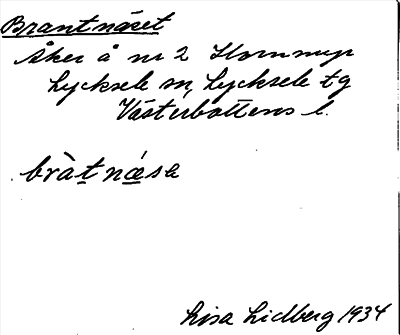 Brantnäset
Åker å nr 2 Hornmyr
Lycksele sn, Lycksele tg
Västerbottens l.
bràt nǽsɛ
Lisa Lidberg 1934